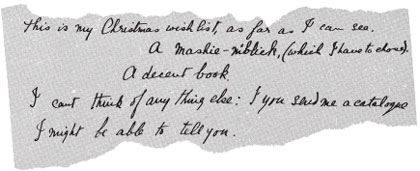 This is my Christmas wish list, as far as I can see.
A mashie-niblick, (which I have to chose).
A decent book
I cant think of any thing else: If you send me a catalogue
I might be able to tell you.